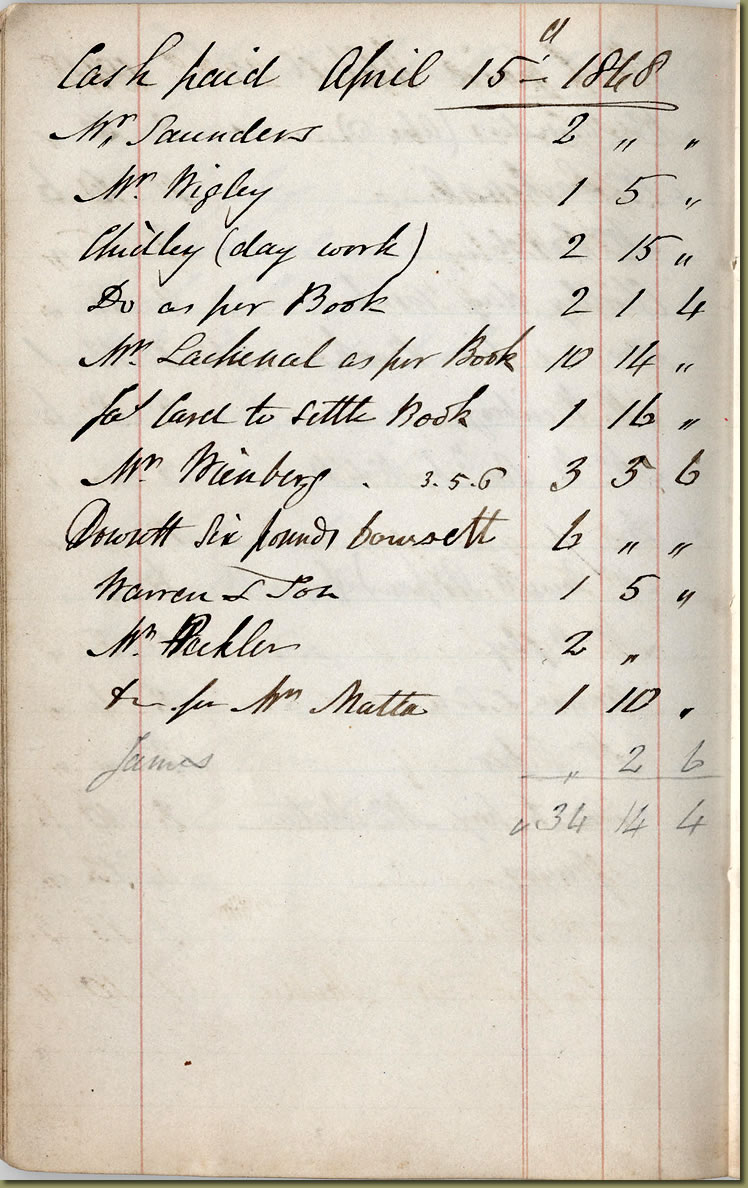 Cash paid April 15 1868
Mr. Saunders 2 " "
Mr. Wigley 1 5 "
Chidley (day work) 2 15 "
Do as per Book 2 1 4
Mr. Lachenal as per Book 10 14 "
Jas Card to settle Book 1 16 "
Mr. Wienberg . 3.5.6 3 5 6
Dowsett six pounds Dowsett 6 " "
Warren & Son 1 5 "
Mr. 2 "
for Mrs Matta 1 10 "
James " 2 6
34 14 4